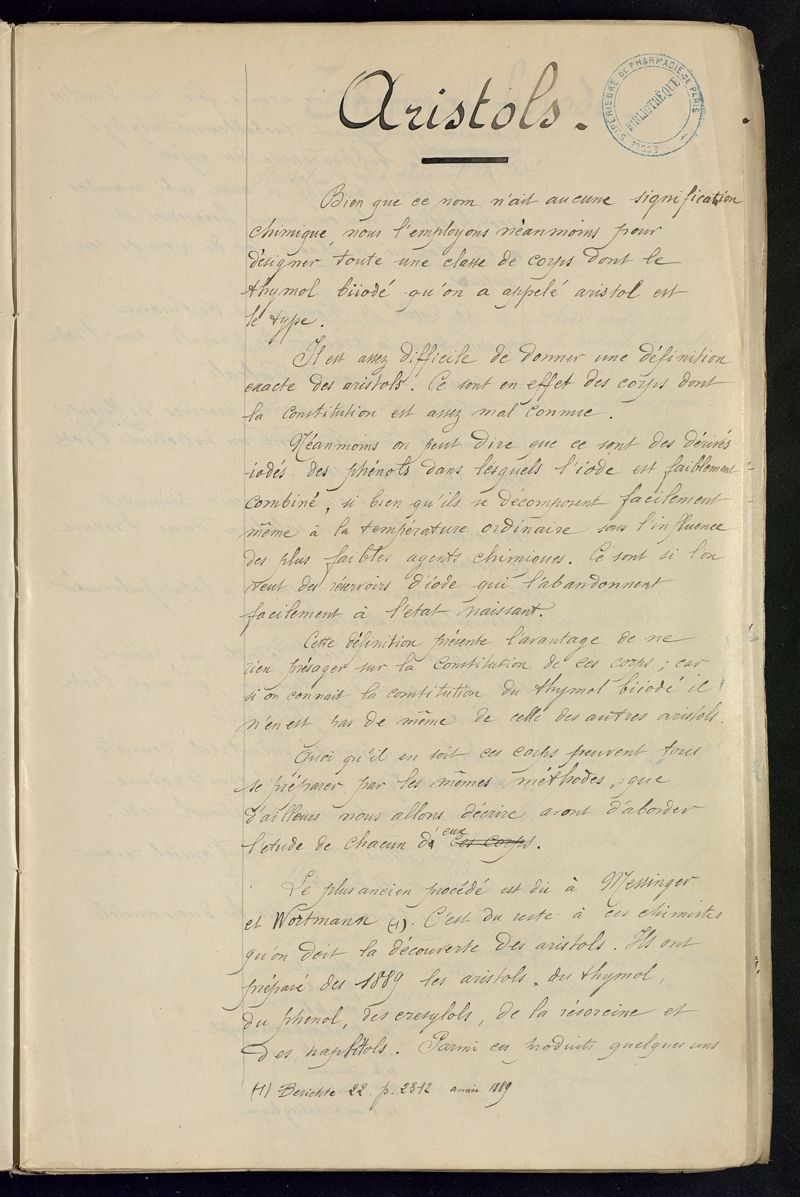 Aristols.
ÉCOLE SUPERIEURE DE PHARMACIE DE PARIS
BIBLIOTHÈQUE
Bien que ce nom n'ait aucune signification
chimique, nous l'employons néanmoins pour
désigner toute une classe de corps dont le
thymol biiodé qu'on a appelé aristol est
le type.
Il est assez difficile de donner une définition
exacte des aristols. Ce sont en effet des corps dont
la constitution est assez mal connue.
Néanmoins on peut dire que ce sont des dérivés
iodés des phénols dans lesquels l'iode est faiblement
combiné, si bien qu'ils se décomposent facilement
même à la température ordinaire sous l'influence
des plus faibles agents chimiques. Ce sont si l'on
veut des réservoirs d'iode qui l'abandonnent
facilement à l'état naissant.
Cette définition présente l'avantage de ne
rien présager sur la constitution de ces corps ; car
si on connait la constitution du thymol biiodé il
n'en est pas de même de celle des autres aristols.
Quoi qu'il en soit ces corps peuvent tous
se préparer par les mêmes méthodes, que
d'ailleurs nous allons décrire avant d'aborder
l'étude de chacun d'eux ces corps.
Le plus ancien procédé est dû à Messinger
et Wortmann (1). C'est du reste à ces chimistes
qu'on doit la découverte des aristols. Ils ont
préparé dès 1889 les aristols du thymol,
du phénol, des crésylols, de la résorcine et
des naphtols. Parmi ces produits quelques uns
(1) Berichte 22. p. 2312 année 1889